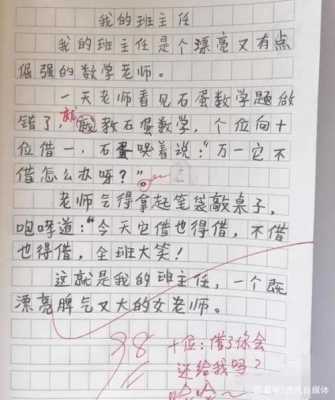 我的班主任
我的班主任是个漂亮又有点
倔强的数学老师。
一天老师看见石蛋数学题做
错了,就教石蛋数学,个位向十
位借一,石蛋哭着说:"万一它不
借怎么办呀?"
老师气得拿起笔袋敲桌子,
咆哮道:"今天它借也得借,不借
也得借,全班大笑!
这就是我的班主任,一个既
漂亮脾气又大的女老师。
98
十位:借了你会
还给我吗?
哈哈~